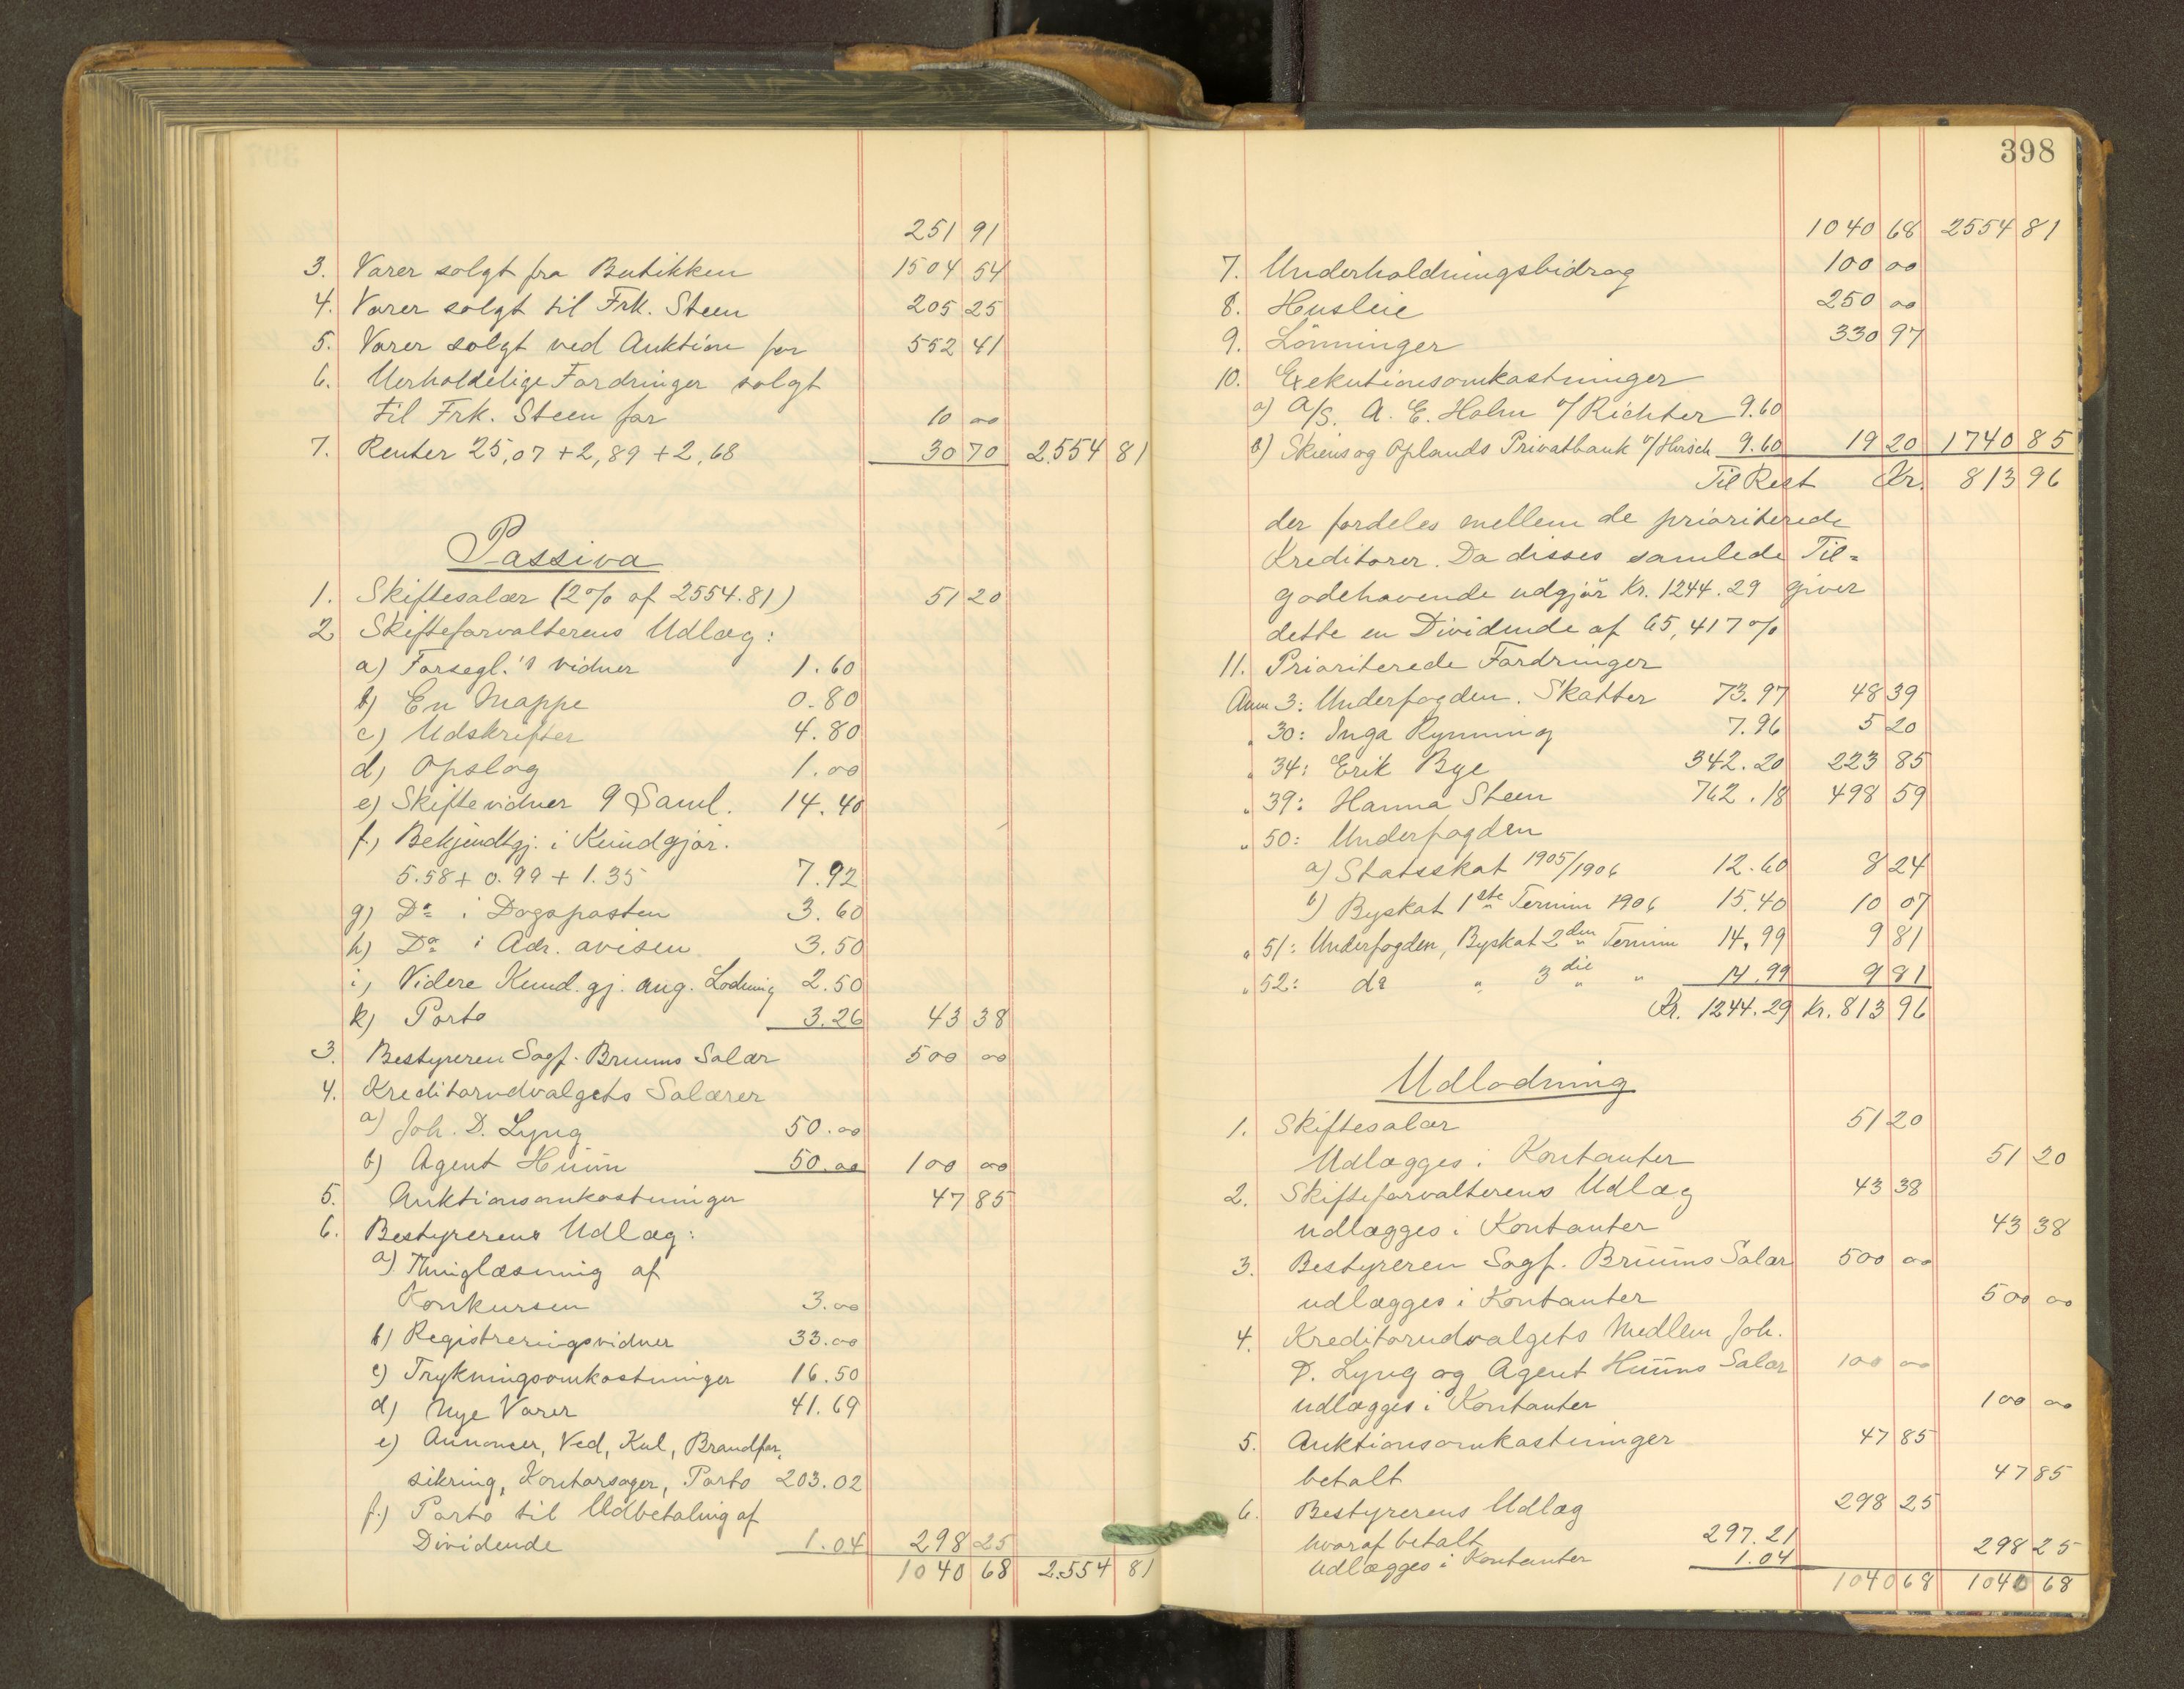 251 91
3. Varer solgt fra Butikken 1504 54
4. Varer solgt til Frk. Steen 205 25
5. Varer solgt ved Auktion for 552 41
6. Uerholdelige Fordringer solgt
til Frk. Steen for 10 00
7. Renter 25,07 + 2,89 + 2,68 30 70 2554 81
Passiva
1. Skiftesalær (2% af 2554.81) 51 20
2 Skifteforvalterens Udlæg:
a) Forsegl.'s vidner 1.60
b) En Mappe 0.80
c) Udskrifter 4.80
d) Opslag 1.00
e) Skiftevidner 9 Saml. 14.40
f) Bekjendtgj. i Kundgjør.
5.58 + 0.99 + 1.35 7.92
g) Do i Dagsposten 3.60
h) Do i Adr. avisen 3.50
i) Videre Kund.gj. ang. Lodning 2.50
k) Porto 3.26 43 38
3. Bestyreren Sagf. Bruuns Salær 500 00
4. Kreditorudvalgets Salærer
a) Joh. D. Lyng 50.00
b) Agent Huun 50.00 100 00
5. Auktionsomkostninger 47 85
6. Bestyrerens Udlæg:
a) Thinglæsning af
Konkursen 3.00
b) Registreringsvidner 33.00
c) Trykningsomkostninger 16.50
d) Nye Varer 41.69
e) Annoncer, Ved, Kul, Brandfor,
sikring, Kontorsager, Porto 203.02
f.) Porto til Udbetaling af
Dividende 1.04 298 25
1040 68 2554 81
398
1040 68 2554 81
7. Underholdningsbidrag 100 00
8. Husleie 250 00
9. Lönninger 330 97
10. Exekutionsomkostninger
a) A/S. A. E. Holm v/ Richter 9.60
b) Skiens og Oplands Privatbank v/ Hirsch 9.60 19 20 1740 85
Til Rest Kr. 813 96
der fordeles mellem de prioriterede
Kreditorer. Da disses samlede Til=
godehavende udgjør Kr. 1244.29 giver
dette en Dividende af 65,417%
11. Prioriterede Fordringer
Anm 3: Underfogden. Skatter 73.97 48 39
" 30: Inga Rynning 7.96 5 20
" 34: Erik Bye 342.20 223 85
" 39: Hanna Steen 762.18 498 59
" 50: Underfogden
a) Statsskat 1905/1906 12.60 8 24
b) Byskat 1ste Termin 1906 15.40 10 07
" 51: Underfogden, Byskat 2den Termin 14.99 9 81
" 52: do " 3die " 14.99 9 81
Kr. 1244.29 Kr. 813 96
Udlodning
1. Skiftesalær 51 20
Udlægges i Kontanter 51 20
2. Skifteforvalterens Udlæg 43 38
udlægges i Kontanter 43 38
3. Bestyreren Sagf. Bruuns Salær 500 00
udlægges i Kontanter 500 00
4. Kreditorudvalgets Medlem Joh.
D. Lyng og Agent Huuns Salær 100 00
udlægges i Kontanter 100 00
5. Auktionsomkostninger 47 85
betalt 47 85
6. Bestyrerens Udlæg 298 25
hvoraf betalt 297.21
udlægges i Kontanter 1.04 298 25
1040 68 1040 68